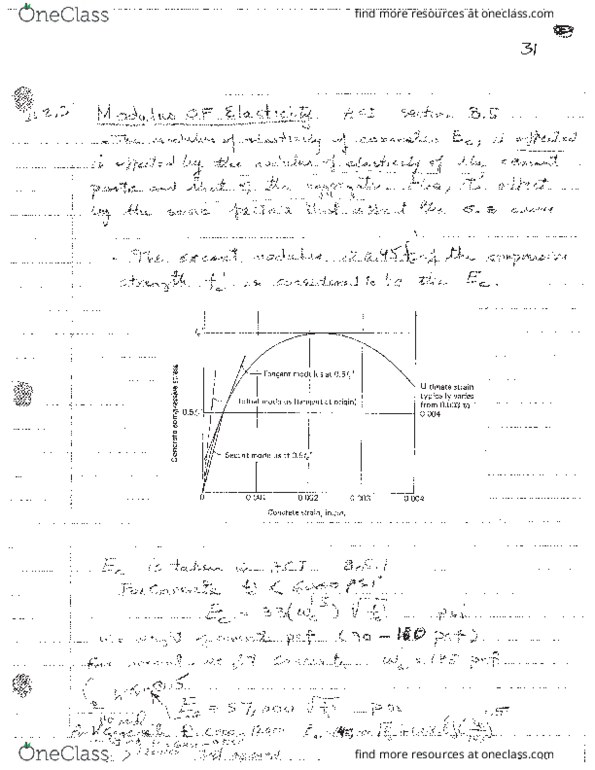 OneClass
find more resources at oneclass.com
31
Modulus of Elasticity ACI section 8.5
The modulus of elasticity of concrete Ec, is affected
is effected by the modulus of elasticity of the cement
paste and that of the aggregate. Also, it affect
by the same factors that affect the σ-ε curve
- The secant modulus 0.45 f'c of the compressive
strength f'c is considered to be the Ec.
f'c
Tangent modulus at 0.5f'c
Initial modulus (tangent at origin)
0.5f'c
Secant modulus at 0.5f'c
Concrete compressive stress
Ultimate strain
typically varies
from 0.003 to
0.004
0 0.001 0.002 0.003 0.004
Concrete strain, in./in.
Ec is taken in ACI 8.5.1
For Concrete f'c < 6000 psi
Ec = 33(wc^1.5) √f'c psi
wc weight of concrete pcf (90 - 160 pcf)
For normal weight concrete wc = 145 pcf
Ec = 57,000 √f'c psi
OneClass
find more resources at oneclass.com